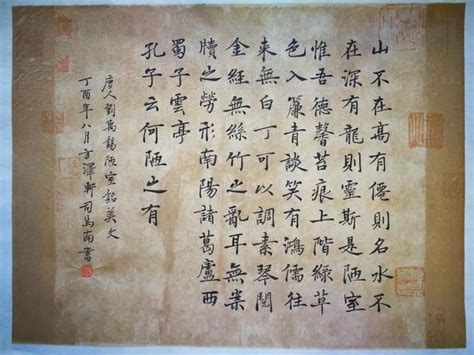 山不在高有僊則名水不
在深有龍則靈斯是陋室
惟吾德馨苔痕上階綠草
色入簾青談笑有鴻儒往
来無白丁可以調素琴閱
金経無絲竹之亂耳無案
牘之勞形南陽諸葛廬西
蜀子雲亭
孔子云何陋之有
唐人劉禹錫陋室銘美文
丁酉年八月方澤軒司馬南書